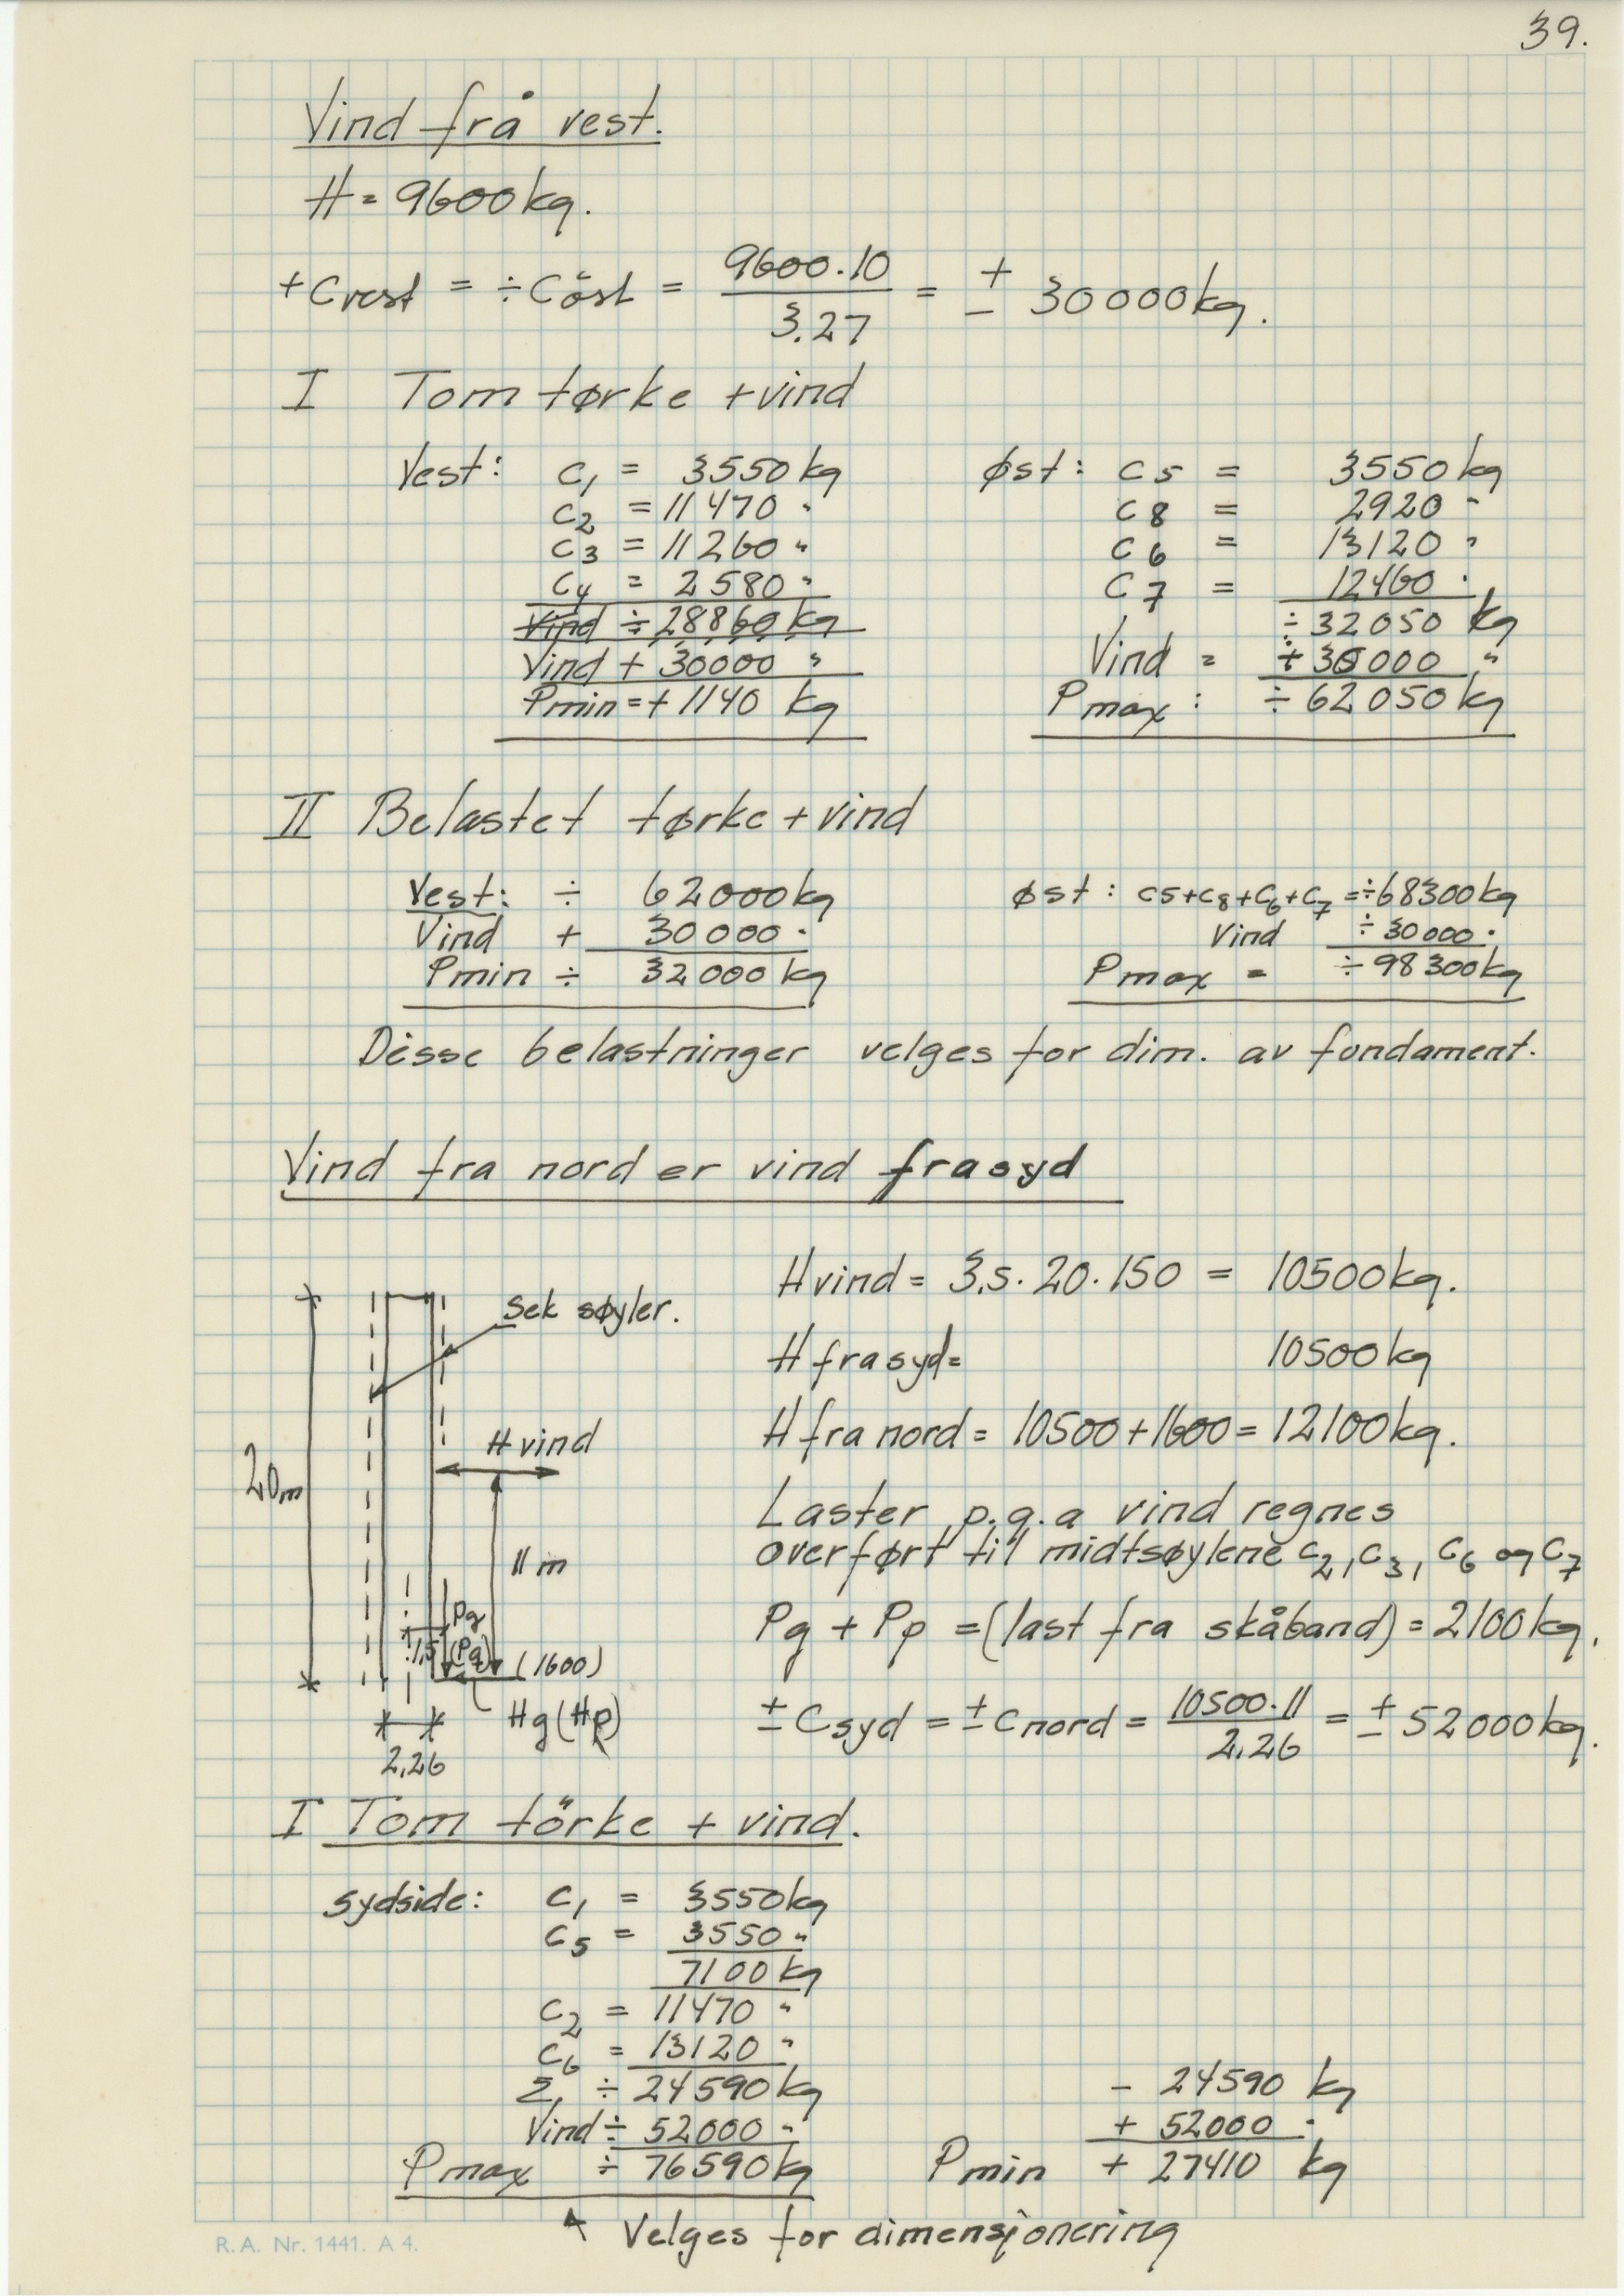 39.
Vind frå vest.
H = 9600 kg.
+ C vest = ÷ C öst = 9600·10 / 3.27 = ± 30000 kg.
I Tom tørke + vind
Vest: C1 = 3550 kg
C2 = 11470 "
C3 = 11260 "
C4 = 2580 "
Vind ÷ 28860 kg
Vind + 30000 "
Pmin = + 1140 kg
Øst: C5 = 3550 kg
C8 = 2920 "
C6 = 13120 "
C7 = 12460 "
÷ 32050 kg
Vind = ÷ 30000 "
Pmax : ÷ 62050 kg
II Belastet tørke + vind
Vest: ÷ 62000 kg
Vind + 30000 "
Pmin ÷ 32000 kg
Øst: C5+C8+C6+C7 = ÷68300 kg
Vind ÷ 30000 "
Pmax = ÷ 98300 kg
Disse belastninger velges for dim. av fundament.
Vind fra nord er vind fra syd
Sek søyler.
20m
H vind
11 m
Pg
(Pg)
1,5
(1600)
Hg (Hp)
2,26
H vind = 3,5 · 20 · 150 = 10500 kg.
H fra syd = 10500 kg
H fra nord = 10500 + 1600 = 12100 kg.
Laster p.g.a vind regnes
overført til midtsøylene C2, C3, C6 og C7
Pg + Pp = (last fra skåband) = 2100 kg.
± C syd = ± C nord = 10500·11 / 2,26 = ± 52000 kg.
I Tom törke + vind.
sydside: C1 = 3550 kg
C5 = 3550 "
7100 kg
C2 = 11470 "
C6 = 13120 "
Σ1 ÷ 24590 kg
Vind ÷ 52000 "
Pmax ÷ 76590 kg
- 24590 kg
+ 52000 "
Pmin + 27410 kg
Velges for dimensjonering
R.A. Nr. 1441. A 4.